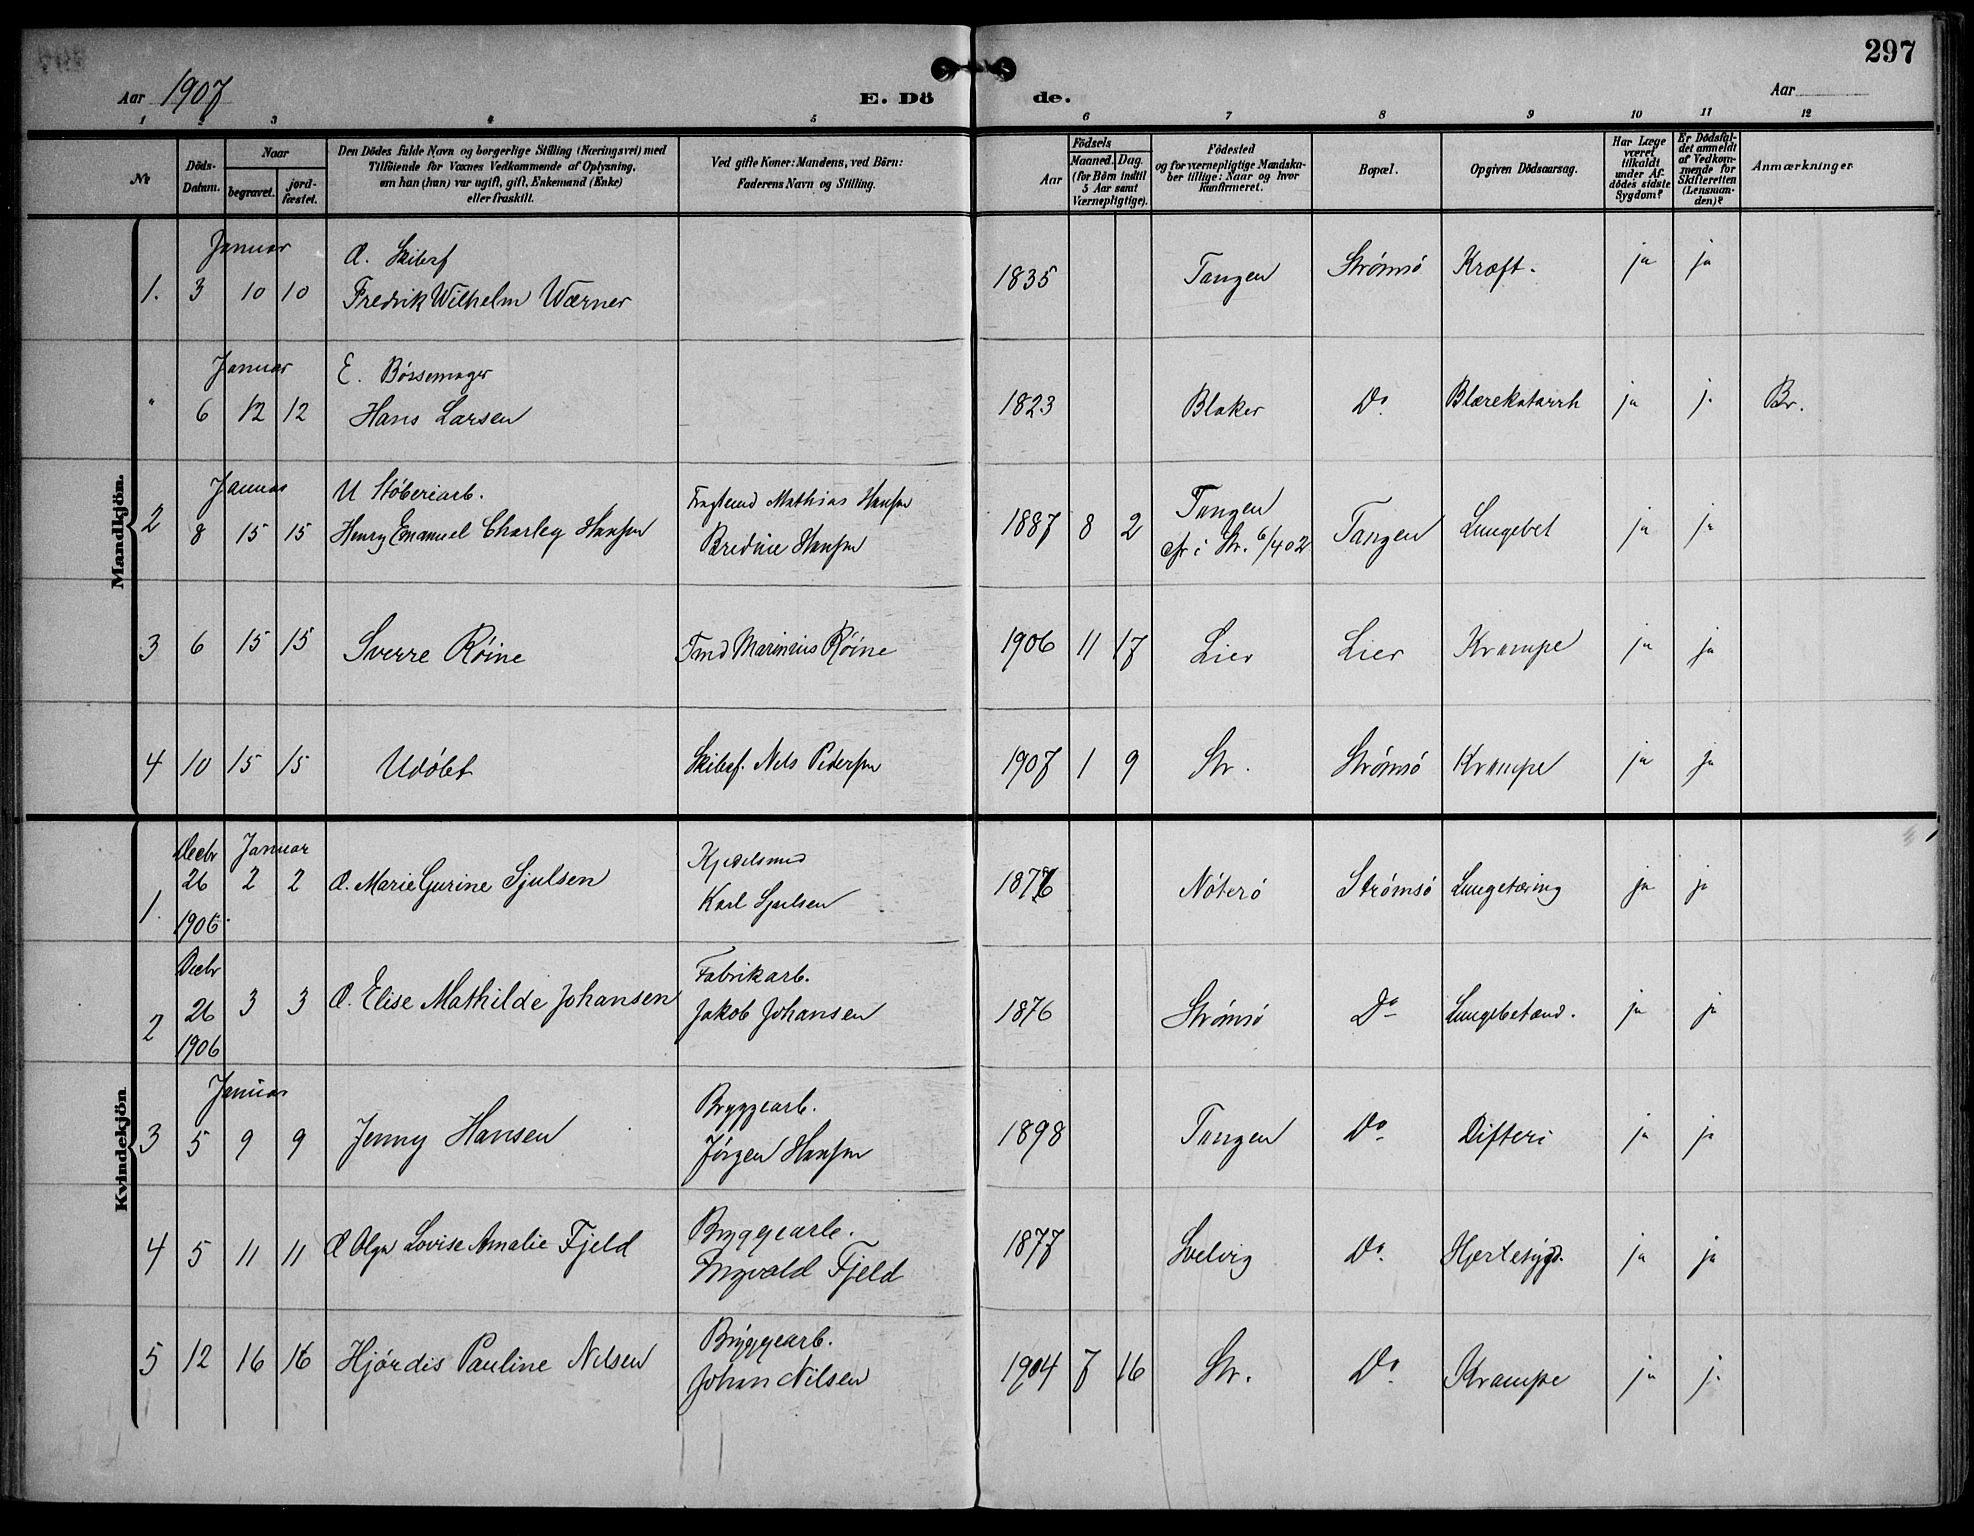 297
Aar 1907
E. Dö de.
Aar
1 2 3 4 5 6 7 8 9 10 11 12
Nr
Döds-Datum.
Naar
begravet.
jord-fæstet.
Den Dödes fulde Navn og borgerlige Stilling (Næringsvei) med
Tilföiende for Voxnes Vedkommende af Oplysning,
om han (hun) var ugift, gift, Enkemand (Enke)
eller fraskilt.
Ved gifte Koner: Mandens, ved Börn:
Faderens Navn og Stilling.
Födsels
Aar
Maaned. Dag.
(for Börn indtil
5 Aar samt
Værnepligtige).
Födested
og for værnepligtige Mandska-
ber tillige: Naar og hvor
konfirmeret.
Bopæl.
Opgiven Dödsaarsag.
Har Læge
været
tilkaldt
under Af-
dödes sidste
Sygdom?
Er Dödsfal-
det anmeldt
af Vedkom-
mende for
Skifteretten
(Lensman-
den)?
Anmærkninger
Mandkjön.
Januar
1. 3 10 10
Fredrik Wilhelm Wærner
1835 Tangen Strømsö Kræft. ja ja
Januar E. Børsemager
" 6 12 12 Hans Larsen 1823 Blaker Do Blærekatarrh ja j. Br.
Januar U Støberiarb.
2 8 15 15 Henry Emanuel Charley Hansen
Mathias Hansen
Hansen
1887 8 2 Tangen
i Str. 6/4 02
Tangen Lungebet ja ja
3 6 15 15 Sverre Røine Fmd Marinius Røine 1906 11 17 Lier Lier Krampe ja ja
4 10 15 15 Udøbt Skibsf. Nils Pedersen 1907 1 9 Str. Strømsö Krampe ja ja
Kvindekjön
Decbr Januar Kjedelsmed
1. 26 2 2 Marie Gurine Sjulsen Karl Sjulsen
1906.
Nöterö Strømsö Lungetæring ja ja
Decbr Fabrikarb.
2 26 3 3 Elise Mathilde Johansen Jakob Johansen 1876 Strømsö Do Lungebetænd. ja ja
1906
Januar Bryggearb.
3 5 9 9 Jenny Hansen Jörgen Hansen 1898 Tangen Do Difteri ja ja
Bryggearb.
4 5 11 11 Olga Lovise Amalie Fjeld Ingvald Fjeld 1877 Svelvig Do. Hjertesygd. ja ja
Bryggearb.
5 12 16 16 Hjördis Pauline Nilsen Johan Nilsen 1904 7 16 Str. Do Krampe ja j.